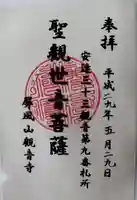 奉拝
平成二九年五月二九日
安達三十三観音第九番札所
聖観世音菩薩
屏風山観音寺